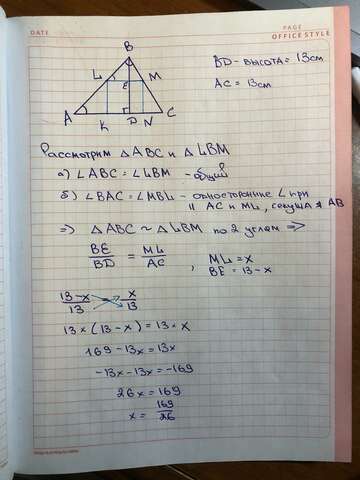 DATE
PAGE
OFFICE STYLE
B
L
M
E
A
K
D
N
C
BD - высота = 13см
AC = 13см
Рассмотрим △ABC и △LBM
а) ∠ABC = ∠LBM - общий
б) ∠BAC = ∠MBL - односторонние ∠ при
|| AC и ML, секуща AB
=> △ABC ~ △LBM по 2 углам =>
BE/BD = ML/AC , ML = x
BE = 13 - x
13-x/13 = x/13
13 × (13 - x) = 13 · x
169 - 13x = 13x
-13x - 13x = -169
26x = 169
x = 169/26